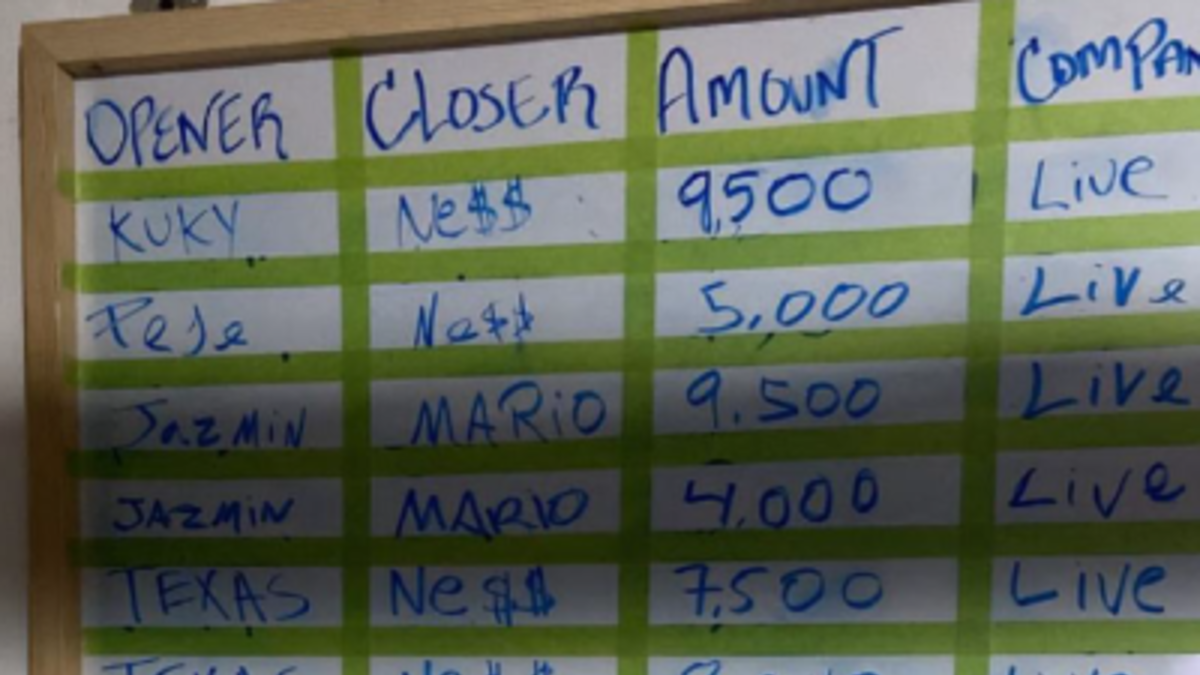 OPENER CLOSER AMOUNT COMPAN
KUKY Ne$$ 9,500 Live
PeJe Ne$$ 5,000 Live
JazMiN MARiO 9.500 Live
JAZMiN MARiO 4.000 Live
TEXAS Ne$$ 7,500 Live
TEXAS Ne$$